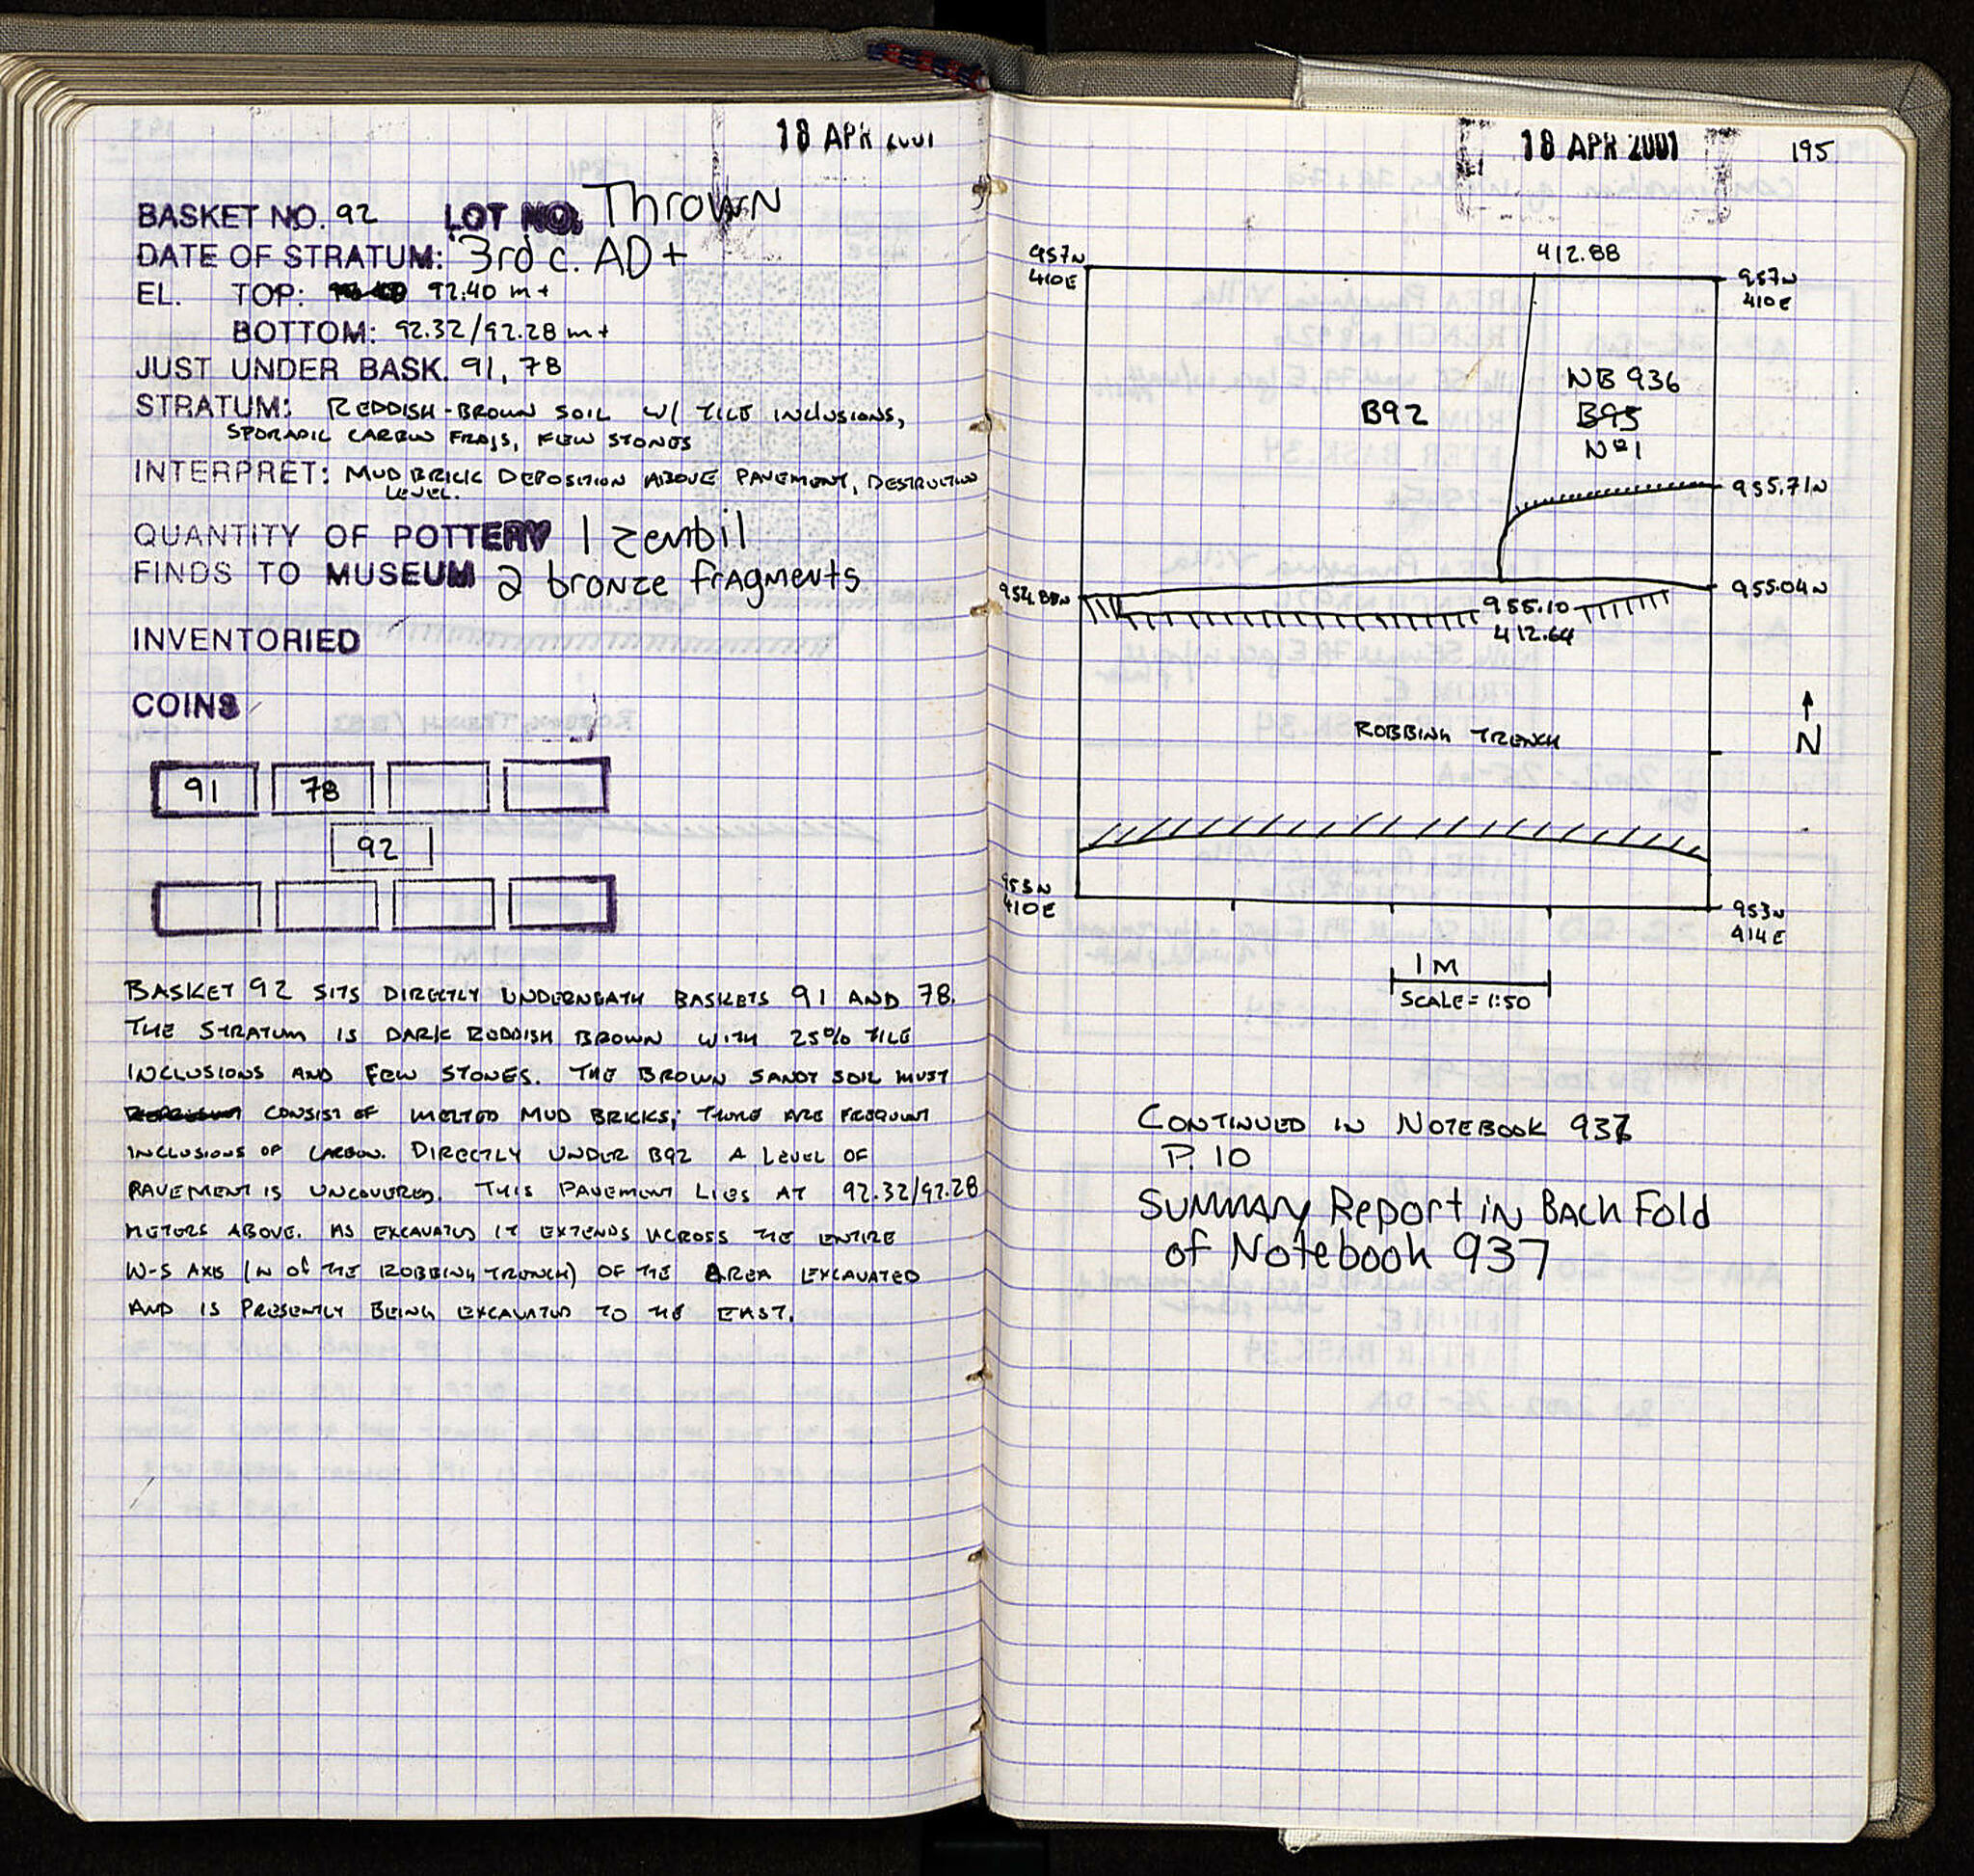 18 APR 2001
BASKET NO. 92 LOT NO. Thrown
DATE OF STRATUM: 3rd c. AD+
EL. TOP: 92.40 m+
BOTTOM: 92.32/92.28 m+
JUST UNDER BASK. 91, 78
STRATUM: REDDISH-BROWN SOIL W/ TILE INCLUSIONS,
SPORADIC CARBON FRAGS, FEW STONES
INTERPRET: MUD BRICK DEPOSITION ABOVE PAVEMENT, DESTRUCTION
LEVEL.
QUANTITY OF POTTERY 1 zembil
FINDS TO MUSEUM 2 bronze fragments
INVENTORIED
COINS
91 78
92
BASKET 92 SITS DIRECTLY UNDERNEATH BASKETS 91 AND 78.
THE STRATUM IS DARK REDDISH BROWN WITH 25% TILE
INCLUSIONS AND FEW STONES. THE BROWN SANDY SOIL MUST
CONSIST OF MELTED MUD BRICKS; THERE ARE FREQUENT
INCLUSIONS OF CARBON. DIRECTLY UNDER B92 A LEVEL OF
PAVEMENT IS UNCOVERED. THIS PAVEMENT LIES AT 92.32/92.28
METERS ABOVE. AS EXCAVATED IT EXTENDS ACROSS THE ENTIRE
W-S AXIS (N OF THE ROBBING TRENCH) OF THE AREA EXCAVATED
AND IS PRESENTLY BEING EXCAVATED TO THE EAST.
18 APR 2001 195
412.88
957N
410E
957N
410E
B92
NB 936
B95
Nº1
955.71N
954.88N
955.04N
955.10
412.64
ROBBING TRENCH
N
953N
410E
953N
414E
1M
SCALE = 1:50
CONTINUED IN NOTEBOOK 937
P. 10
Summary Report in Back Fold
of Notebook 937